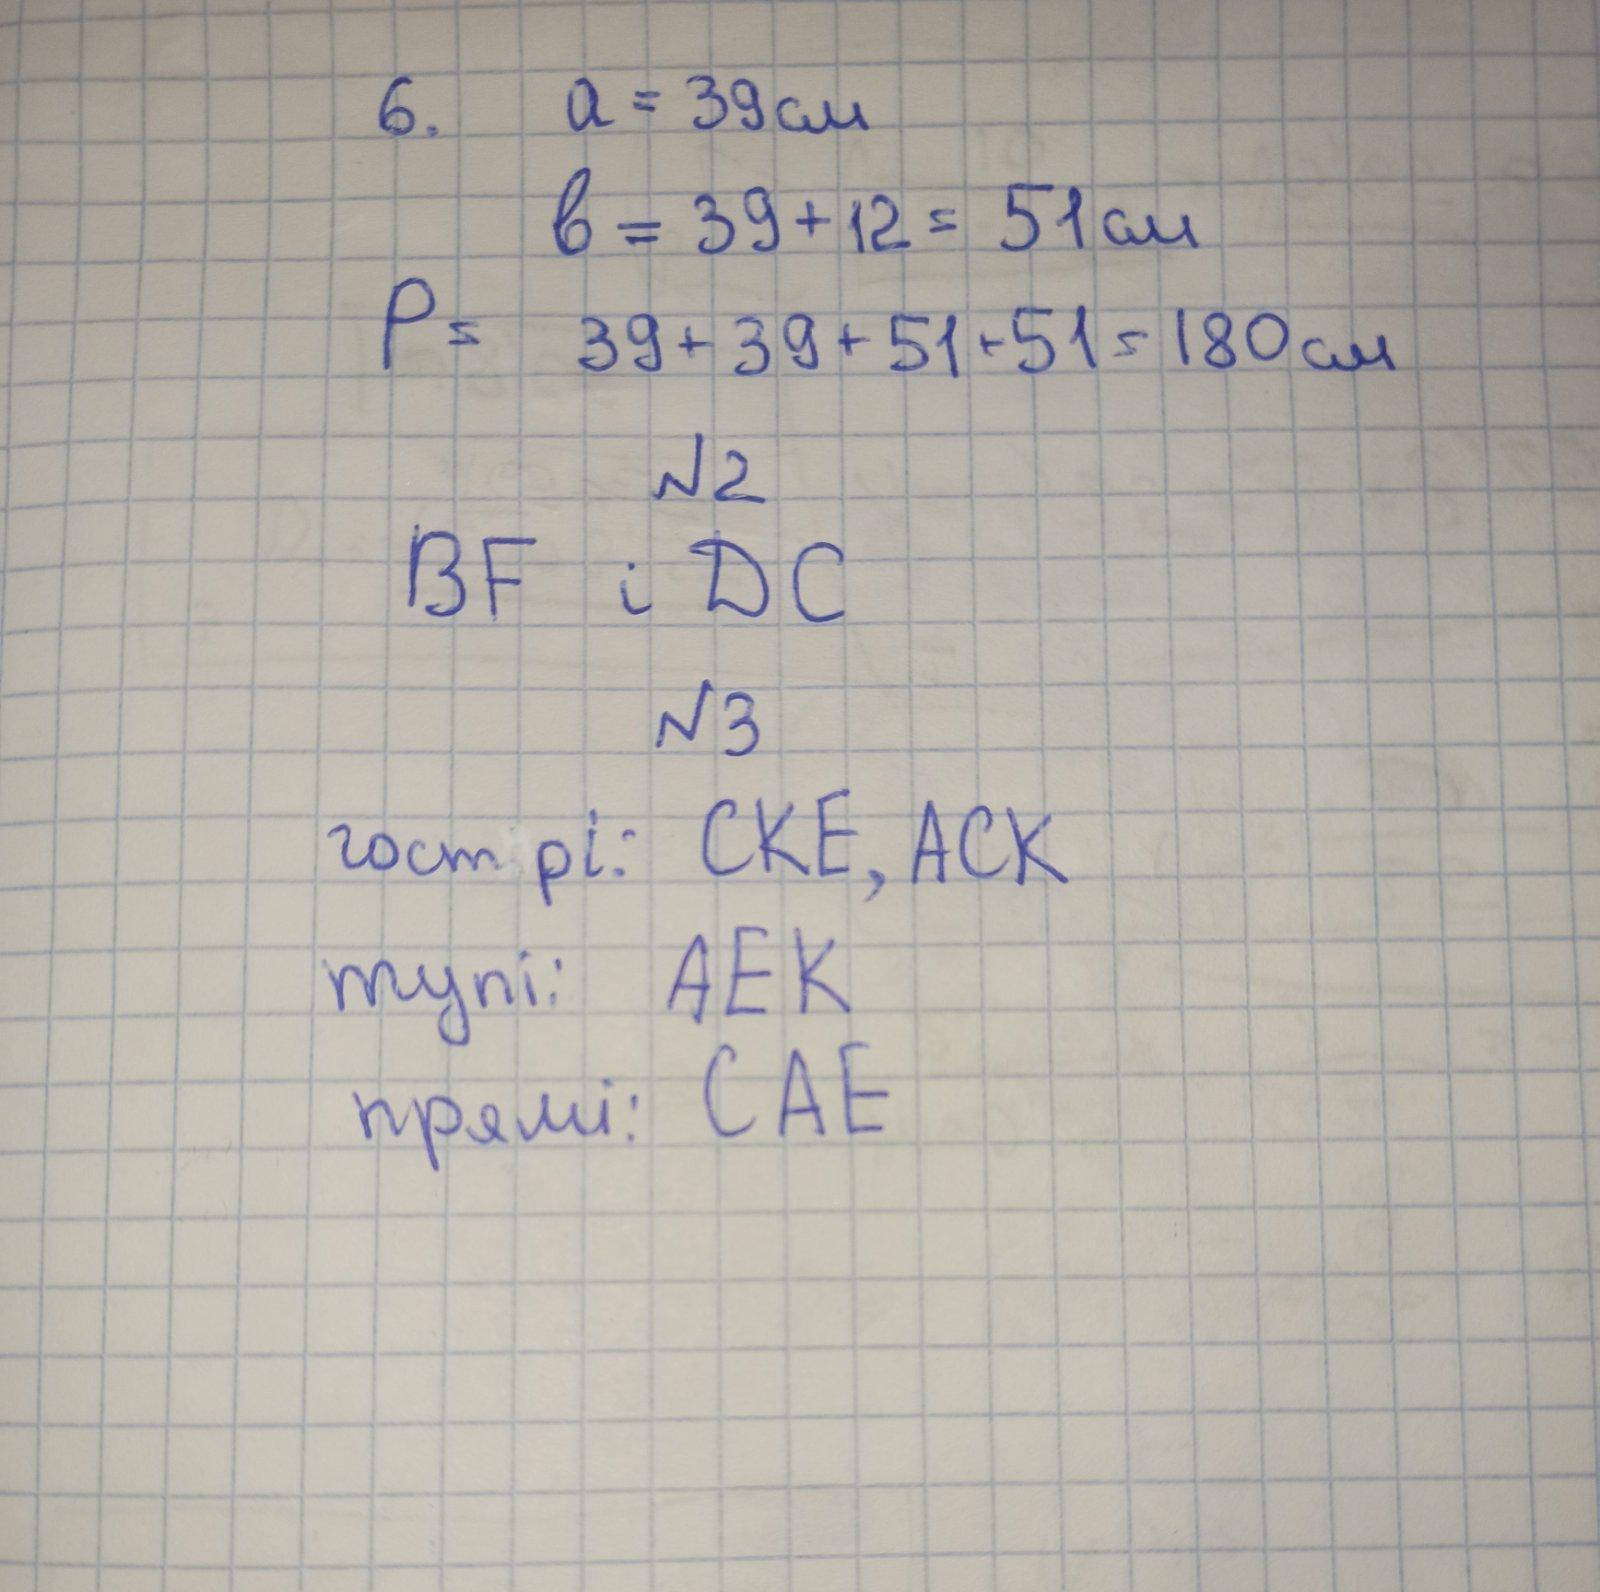 6. a = 39см
в = 39+12 = 51см
P = 39+39+51+51=180см
№2
BF і DC
№3
гострі: CKE, ACK
тупі: AEK
прямі: CAE